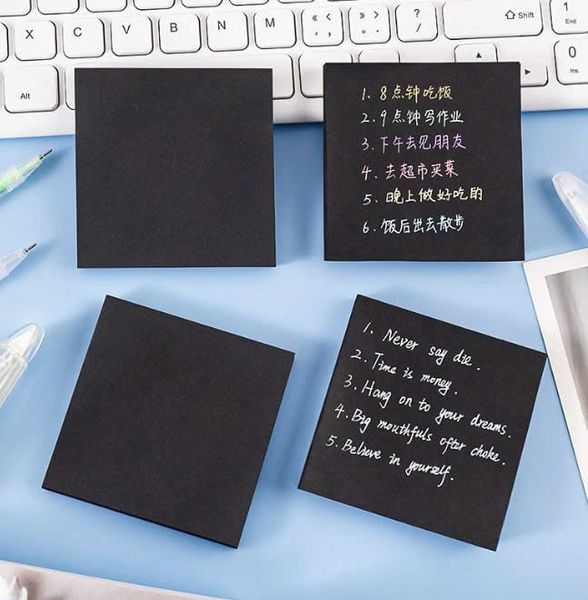 X C V B N M « 》 ? Shift 1 End
Alt Alt Ctrl 0 Ins
1. 8点钟吃饭
2. 9点钟写作业
3. 下午去见朋友
4. 去超市买菜
5. 晚上做好吃的
6. 饭后出去散步
1. Never say die.
2. Time is money.
3. Hang on to your dreams.
4. Big mouthfuls ofter choke.
5. Believe in yourself.